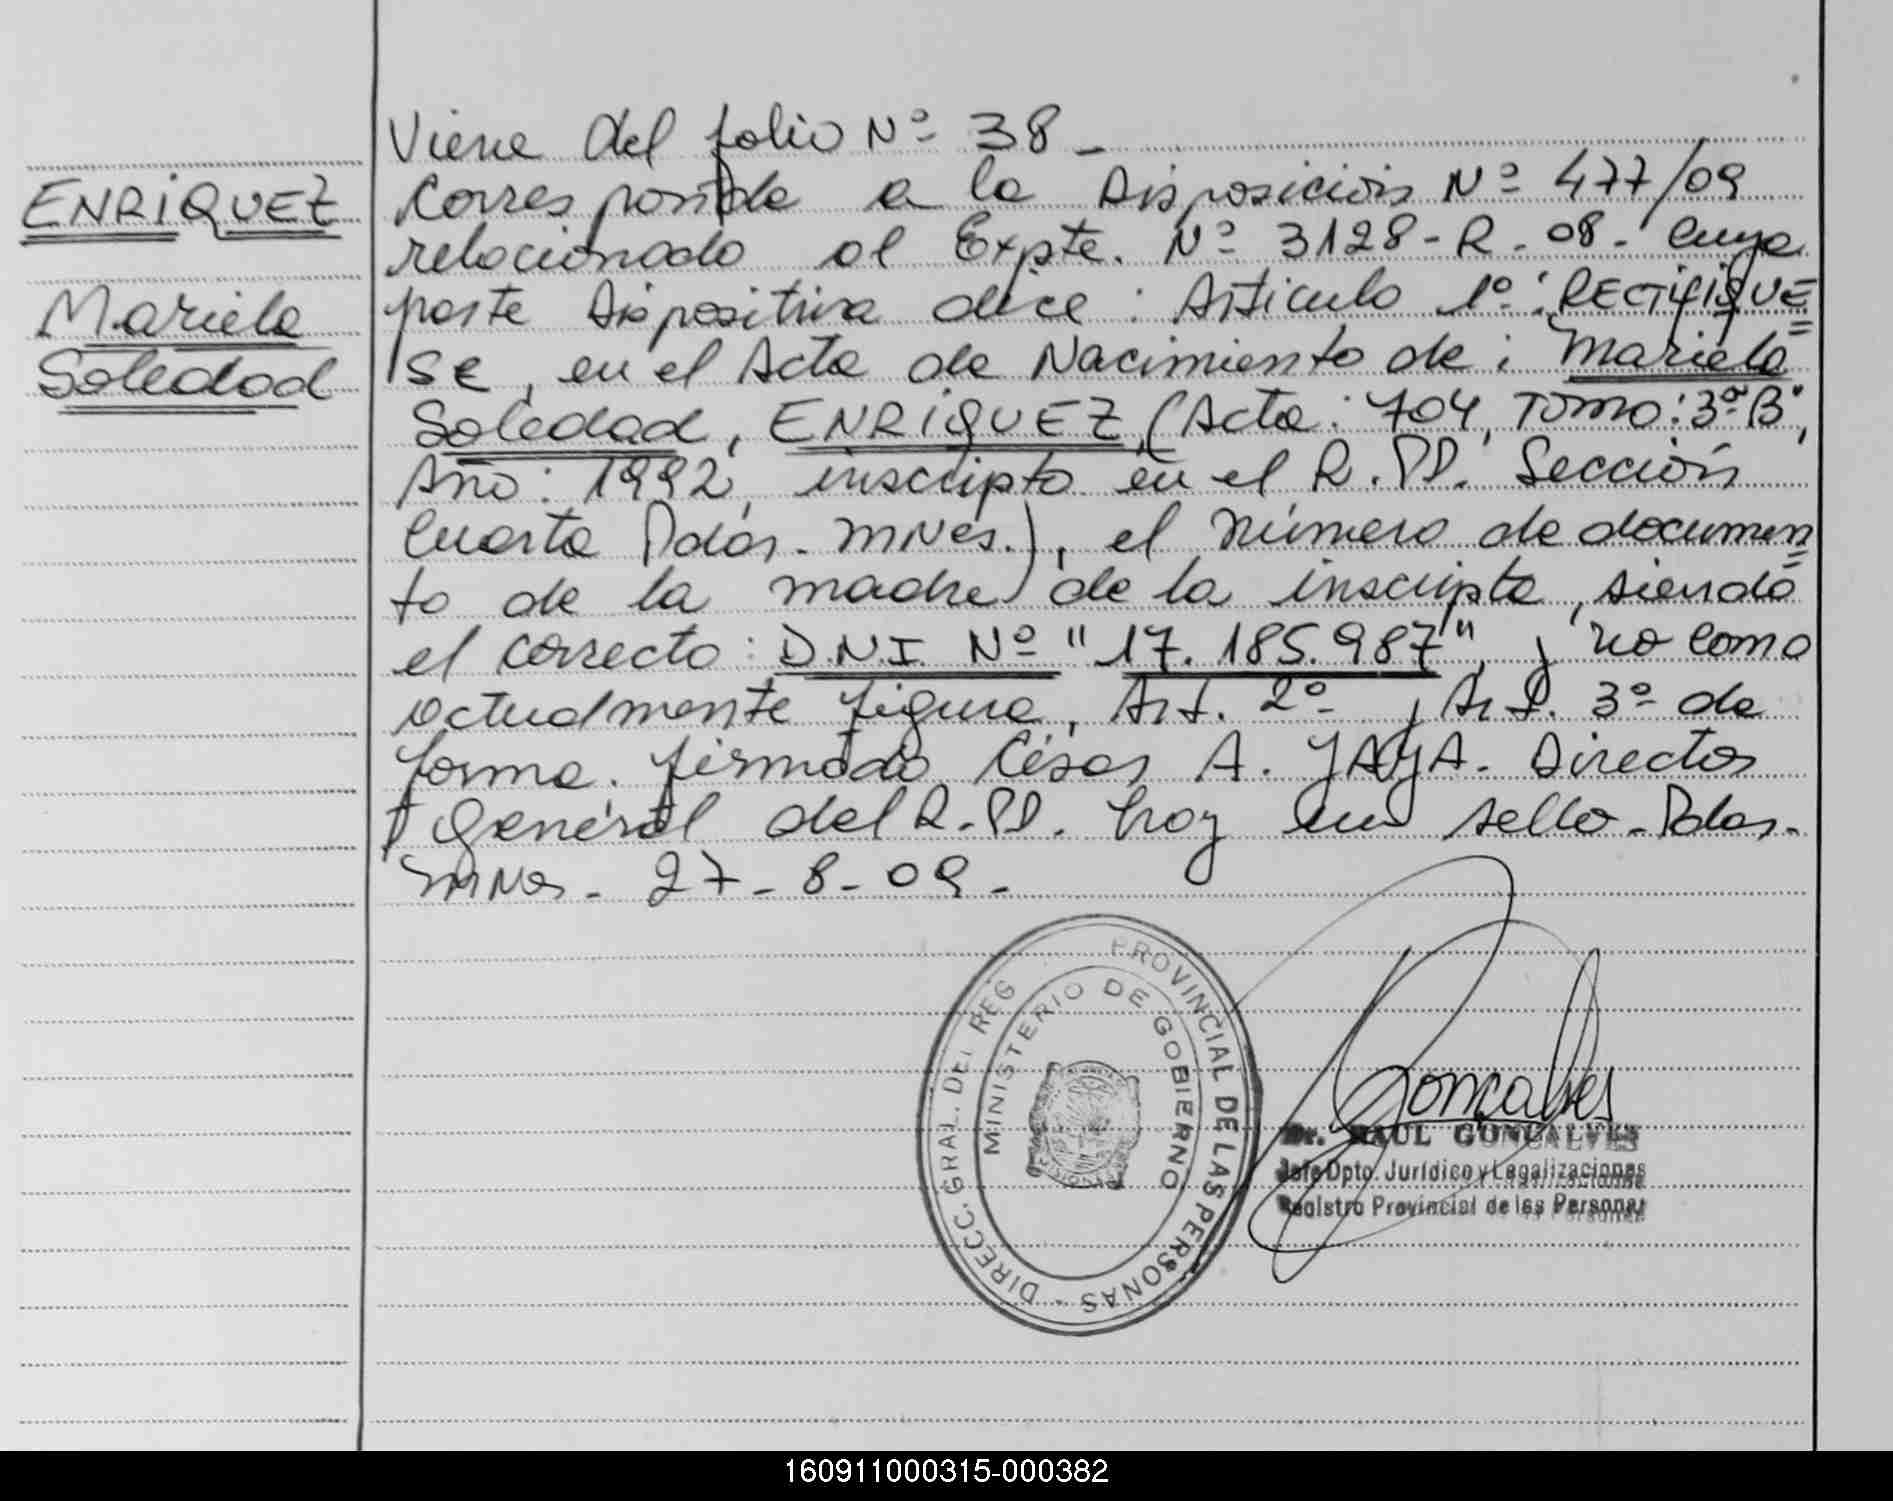 Viene del folio Nº 38 -
ENRiQUEZ
Mariela
Soledad
Corresponde a la Disposición Nº 477/09
relacionado al Expte. Nº 3128-R-08- Cuya
parte Dispositiva dice: Artículo 1º: RECTIFIQUE=
SE, en el Acta de Nacimiento de: Mariela
Soledad, ENRiQUEZ, (Acta: 704, TOMO: 3º B",
Año: 1992, inscripta en el R.PP. Sección
Cuarta Pdas. MNes.), el número de documen=
to de la madre de la inscripta, siendo
el correcto: D.N.I. Nº "17.185.987", y no como
actualmente figura, Art. 2º y Art. 3º de
forma. firmado César A. YAYA. Director
General del R.PP. hay un sello-Pdas.
MNes - 27-8-09-
DIRECC. GRAL. DEL REG PROVINCIAL DE LAS PERSONAS -
MINISTERIO DE GOBIERNO
Goncalves
Dr. RAUL GONCALVES
Jefe Dpto. Jurídico y Legalizaciones
Registro Provincial de las Personas
160911000315-000382